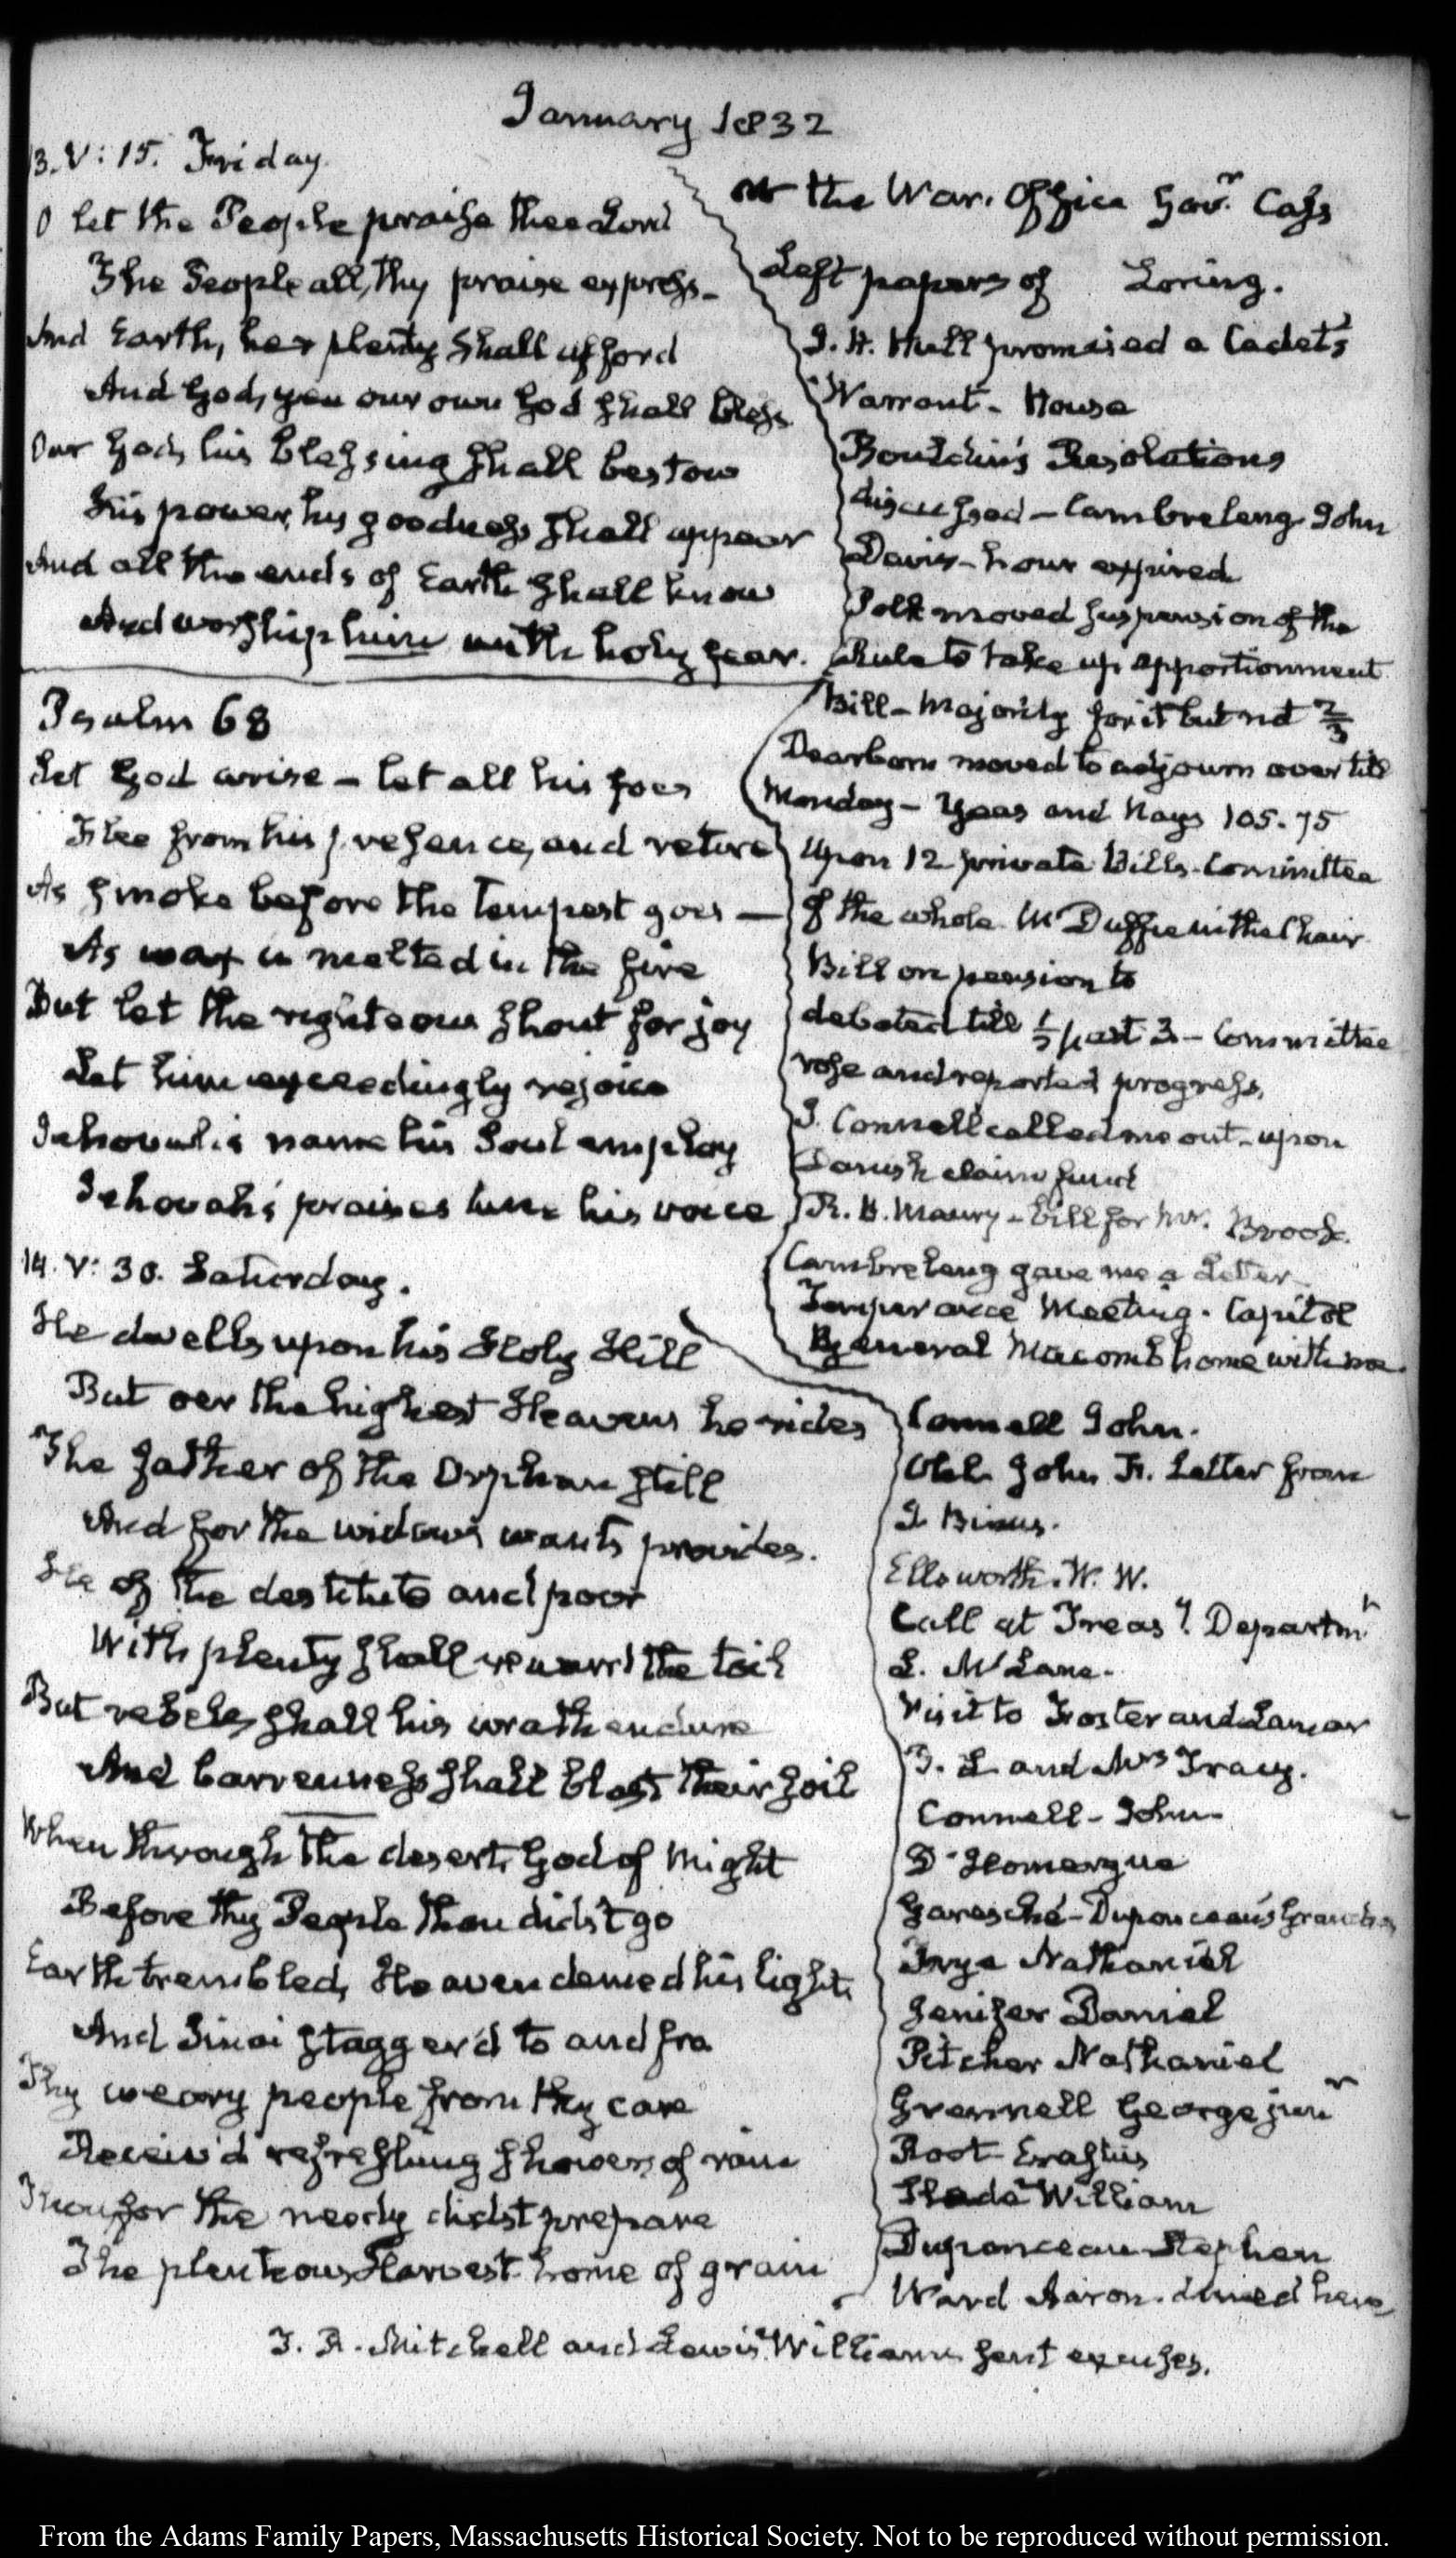 January 1832
13. V: 15. Friday.
O let the People praise thee Lord
The People all, thy praise express-
And Earth, her plenty shall afford
And God, yea our own God shall bless
Our God, his blessing shall bestow
His power, his goodness shall appear
And all the ends of Earth shall know
And worship him with holy fear.
Psalm 68
Let God arise - let all his foes
Flee from his presence, and retire
As smoke before the tempest goes —
As wax is melted in the fire
But let the righteous shout for joy
Let him exceedingly rejoice
Jehovah's name his Soul employ
Jehovah's praises tune his voice
14. V: 30. Saturday.
He dwells upon his Holy Hill
But oer the highest Heavens he rides
The father of the Orphan still
And for the widow's wants provides.
He of the destitute and poor
With plenty shall reward the toil
But rebels shall his wrath endure
And barrenness shall blast their soil
When through the desert, God of Might
Before thy People thou didst go
Earth trembled, Heaven denied his light
And Sinai stagger'd to and fro
Thy weary people from thy care
Receiv'd refreshing showers of rain
Thou for the needy didst prepare
The plenteous Harvest home of grain
At the War. Office Govr. Cass
Left papers of Loring.
J. H. Hull promised a Cadet's
Warrant - House
Bouldin's Resolutions
discussed - Cambreleng John
Davis - hour expired
Polk moved suspension of the
Rule to take up apportionment
Bill - Majority for it but not 2/3
Dearborn moved to adjourn over till
Monday - Yeas and Nays 105. 75
Upon 12 private Bills - Committee
of the whole McDuffie in the Chair
Bill on pension to
debated till 1/2 past 3 - Committee
rose and reported progress,
J. Connell called me out - upon
Danish claim fund
R. B. Maury - bill for Mr. Brook.
Cambreleng gave me a Letter
Temperance Meeting. Capitol
General Macomb home with me.
Connell John.
John F. Letter from
J Binns.
Ellsworth. W. W.
Call at Treasy. Departmt
L. McLane.
Visit to Foster and Lamar
and Mrs Tracy.
Connell - John
D'Homergue
Garesché - Duponceau's
Frye Nathaniel
Jenifer Daniel
Pitcher Nathaniel
Grennell George junr
Root Erastus
Slade William
Duponceau Stephen
Ward Aaron. dined here
T. R. Mitchell and Lewis Williams sent excuses.
From the Adams Family Papers, Massachusetts Historical Society. Not to be reproduced without permission.